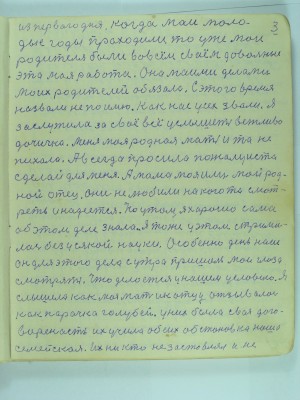 3
из первого дня, когда мои моло-
дые годы проходили то уже мои
родители были во всём своём довольные
эта моя работа. Она моими делами
моих родителей обязала. С этого время
назвали не по имю. Как нас усех звали. Я
заслужила за своё всё услышить вежливо
дочичка. меня моя родная мать и та не
пихала. А всегда просила пожалуиста
сделай для меня. А мама мой рад-
ной отец, они не любили на кого то смот-
реть и надется. Но утом я хорошо сама
об этом деле знала. Я тоже утом стрями-
лася без усякой науки. Особенно день наш
он для этого дела с утра пришол мои глаза
смотрять. Что делается у нашем условию. Я
слышела как моя мать и отцу отзывалася
как парочка голубей. у них была своя дого-
вареность их учила обеих обстановка наша
семейская. Их ни кто не заставлял и не